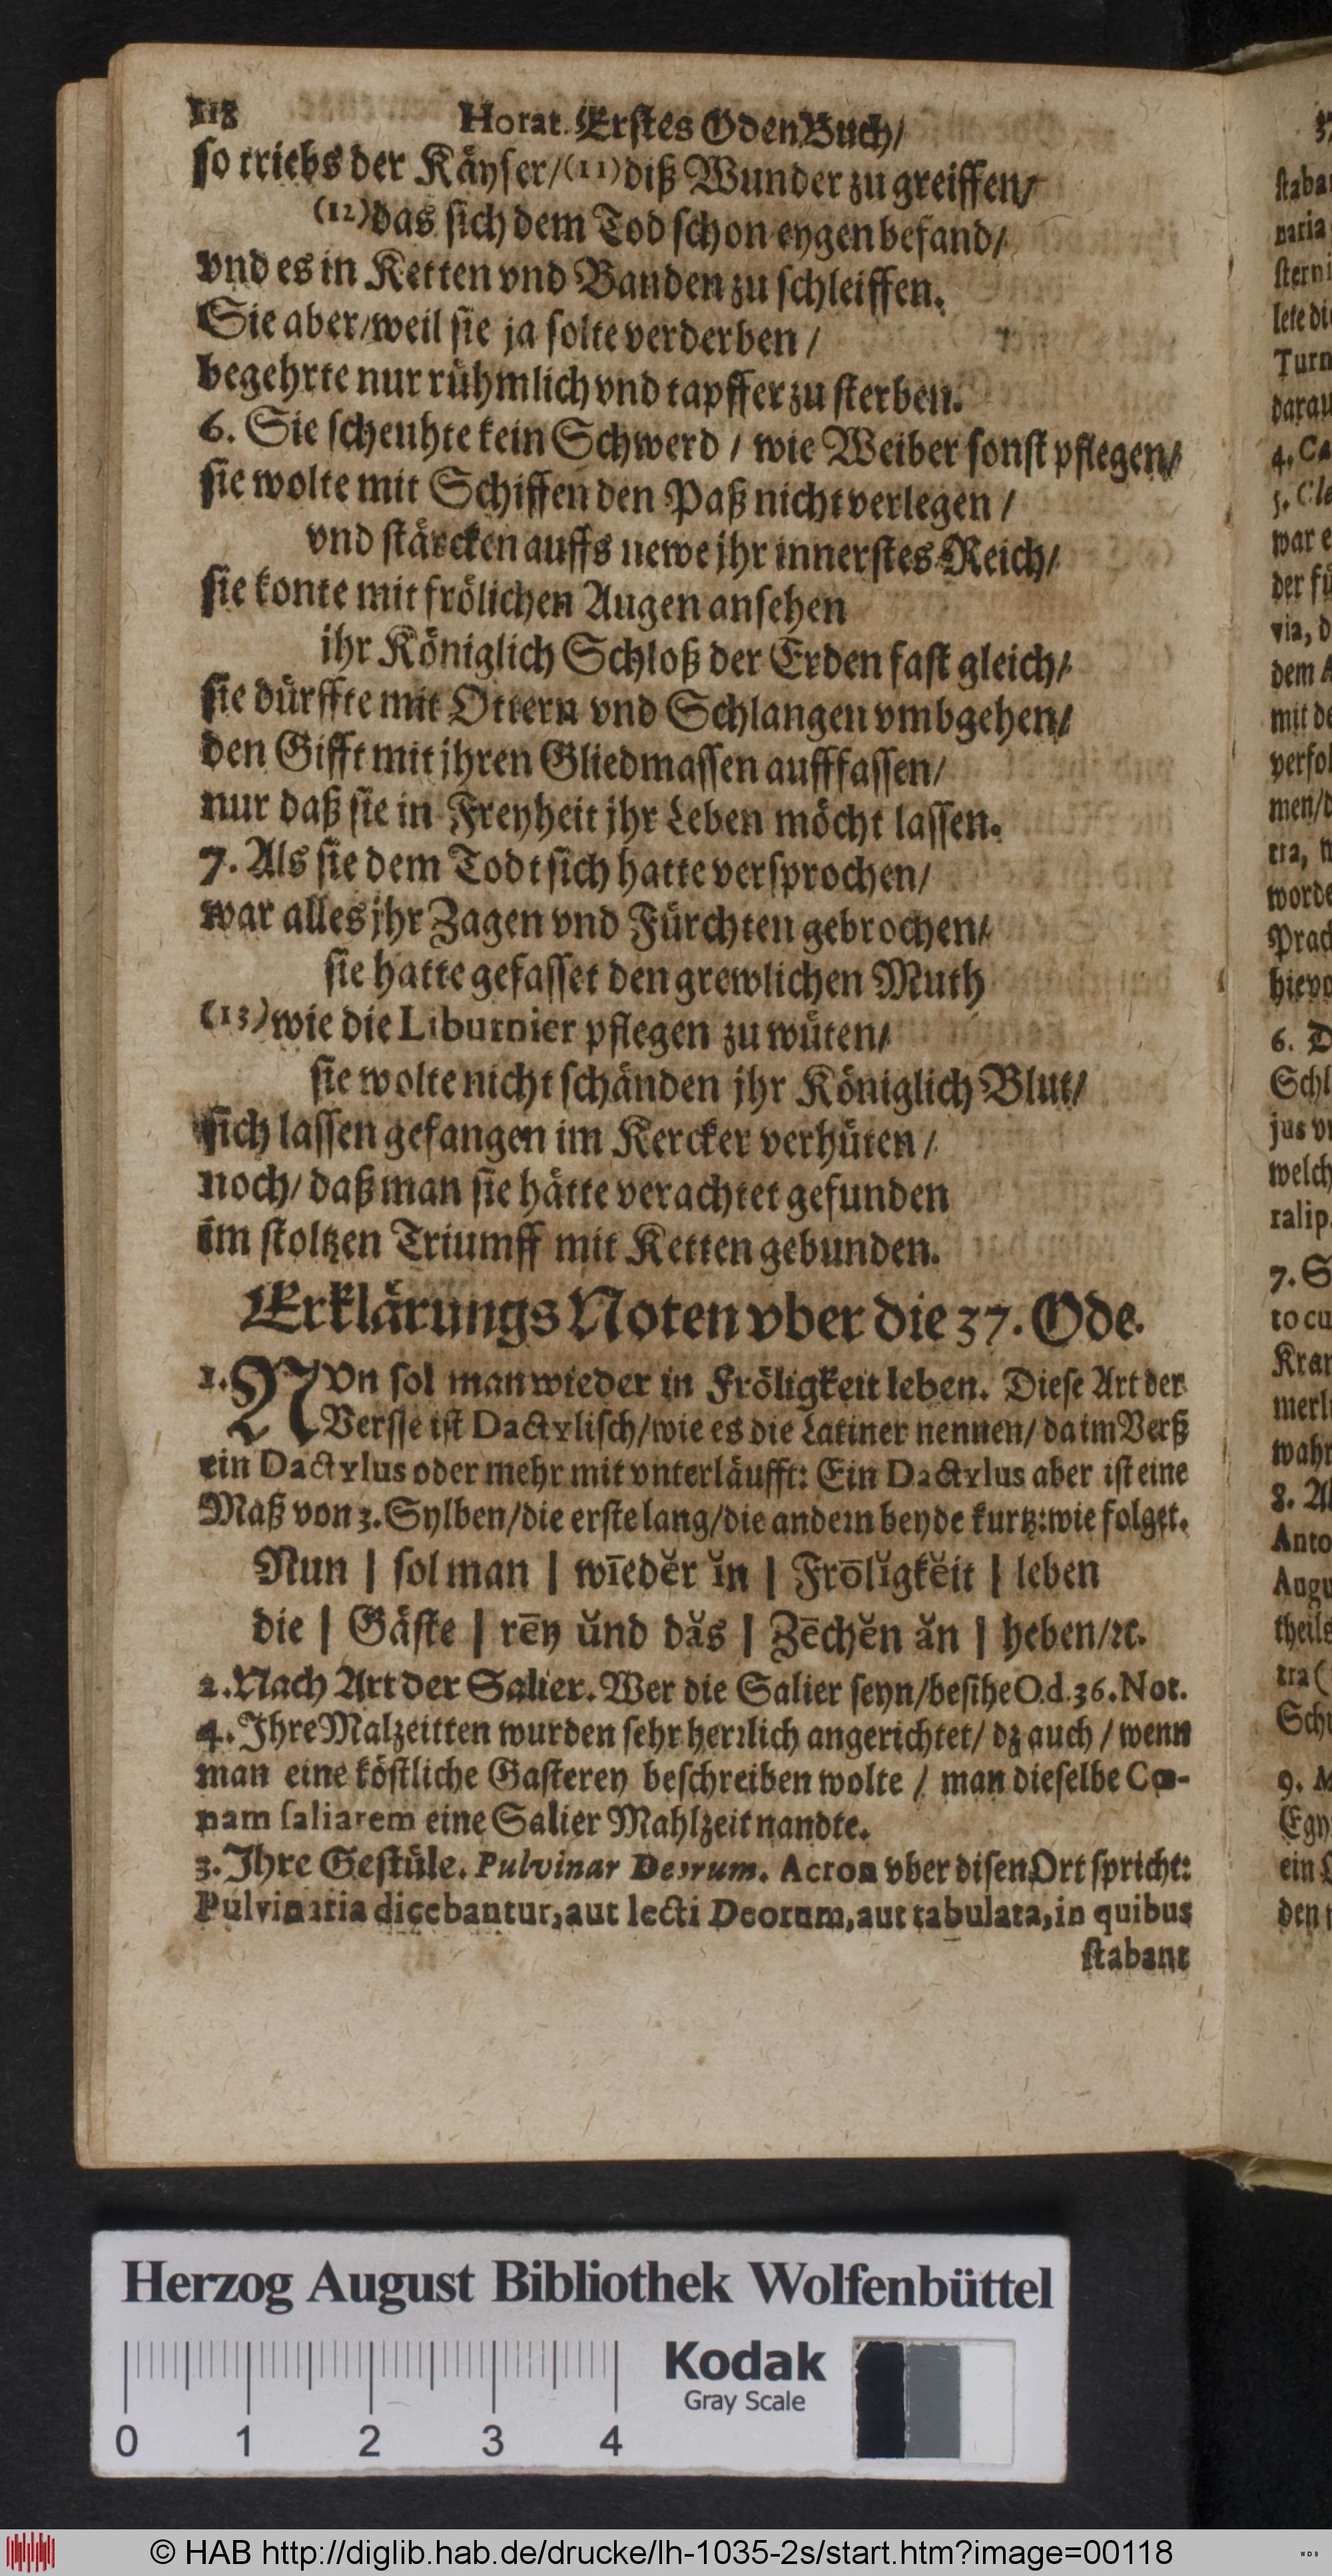 118 Horat. Erstes Oden Buch/
so triebs der Käyser/(11)diß Wunder zu greiffen/
(12)das sich dem Tod schon eygen befand/
vnd es in Ketten vnd Banden zu schleiffen.
Sie aber/weil sie ja solte verderben /
begehrte nur rühmlich vnd tapffer zu sterben.
6. Sie scheuhte kein Schwerd / wie Weiber sonst pflegen/
sie wolte mit Schiffen den Paß nicht verlegen /
vnd stärcken auffs newe jhr innerstes Reich/
sie konte mit frölichen Augen ansehen
ihr Königlich Schloß der Erden fast gleich/
sie dürffte mit Ottern vnd Schlangen vmbgehen/
den Gifft mit jhren Gliedmassen aufffassen/
nur daß sie in Freyheit jhr Leben möcht lassen.
7. Als sie dem Todt sich hatte versprochen/
war alles jhr Zagen vnd Fürchten gebrochen/
sie hatte gefasset den grewlichen Muth
(13)wie die Liburnier pflegen zu wüten/
sie wolte nicht schänden jhr Königlich Blut/
sich lassen gefangen im Kercker verhüten /
noch/ daß man sie hätte verachtet gefunden
im stoltzen Triumff mit Ketten gebunden.
Erklärungs Noten vber die 37. Ode.
1. NVn sol man wieder in Fröligkeit leben. Diese Art der
Versse ist Dactylisch/wie es die Latiner nennen/ da im Verß
ein Dactylus oder mehr mit vnterläufft: Ein Dactylus aber ist eine
Maß von 3. Sylben/die erste lang/die andern beyde kurtz:wie folget.
Nun | sol man | wīedĕr ĭn | Frōlĭgkĕit | leben
die | Gäste | rēy ŭnd dăs | Zēchĕn ăn | heben/ꝛc.
2. Nach Art der Salier. Wer die Salier seyn/besihe Od. 36. Not.
4. Jhre Malzeitten wurden sehr herꝛlich angerichtet/ dz auch / wenn
man eine köstliche Gasterey beschreiben wolte / man dieselbe Cœ-
nam saliarem eine Salier Mahlzeit nandte.
3. Jhre Gestüle. Pulvinar Deorum. Acron vber disen Ort spricht:
Pulvinaria dicebantur, aut lecti Deorum, aut tabulata, in quibus
stabant
staba
naria
sterni
lete di
Turn
darau
4. Ca
5. Cle
war e
der fü
via, d
dem A
mit de
verfol
men/d
tra, n
worde
Prac
hievo
6. D
Schl
jus v
welch
ralip.
7. S
to cu
Krar
merl
wahr
8. Al
Anto
Augu
theils
tra (
Sch
9. M
Egy
ein L
den
Herzog August Bibliothek Wolfenbüttel
Kodak
Gray Scale
0 1 2 3 4
© HAB http://diglib.hab.de/drucke/lh-1035-2s/start.htm?image=00118